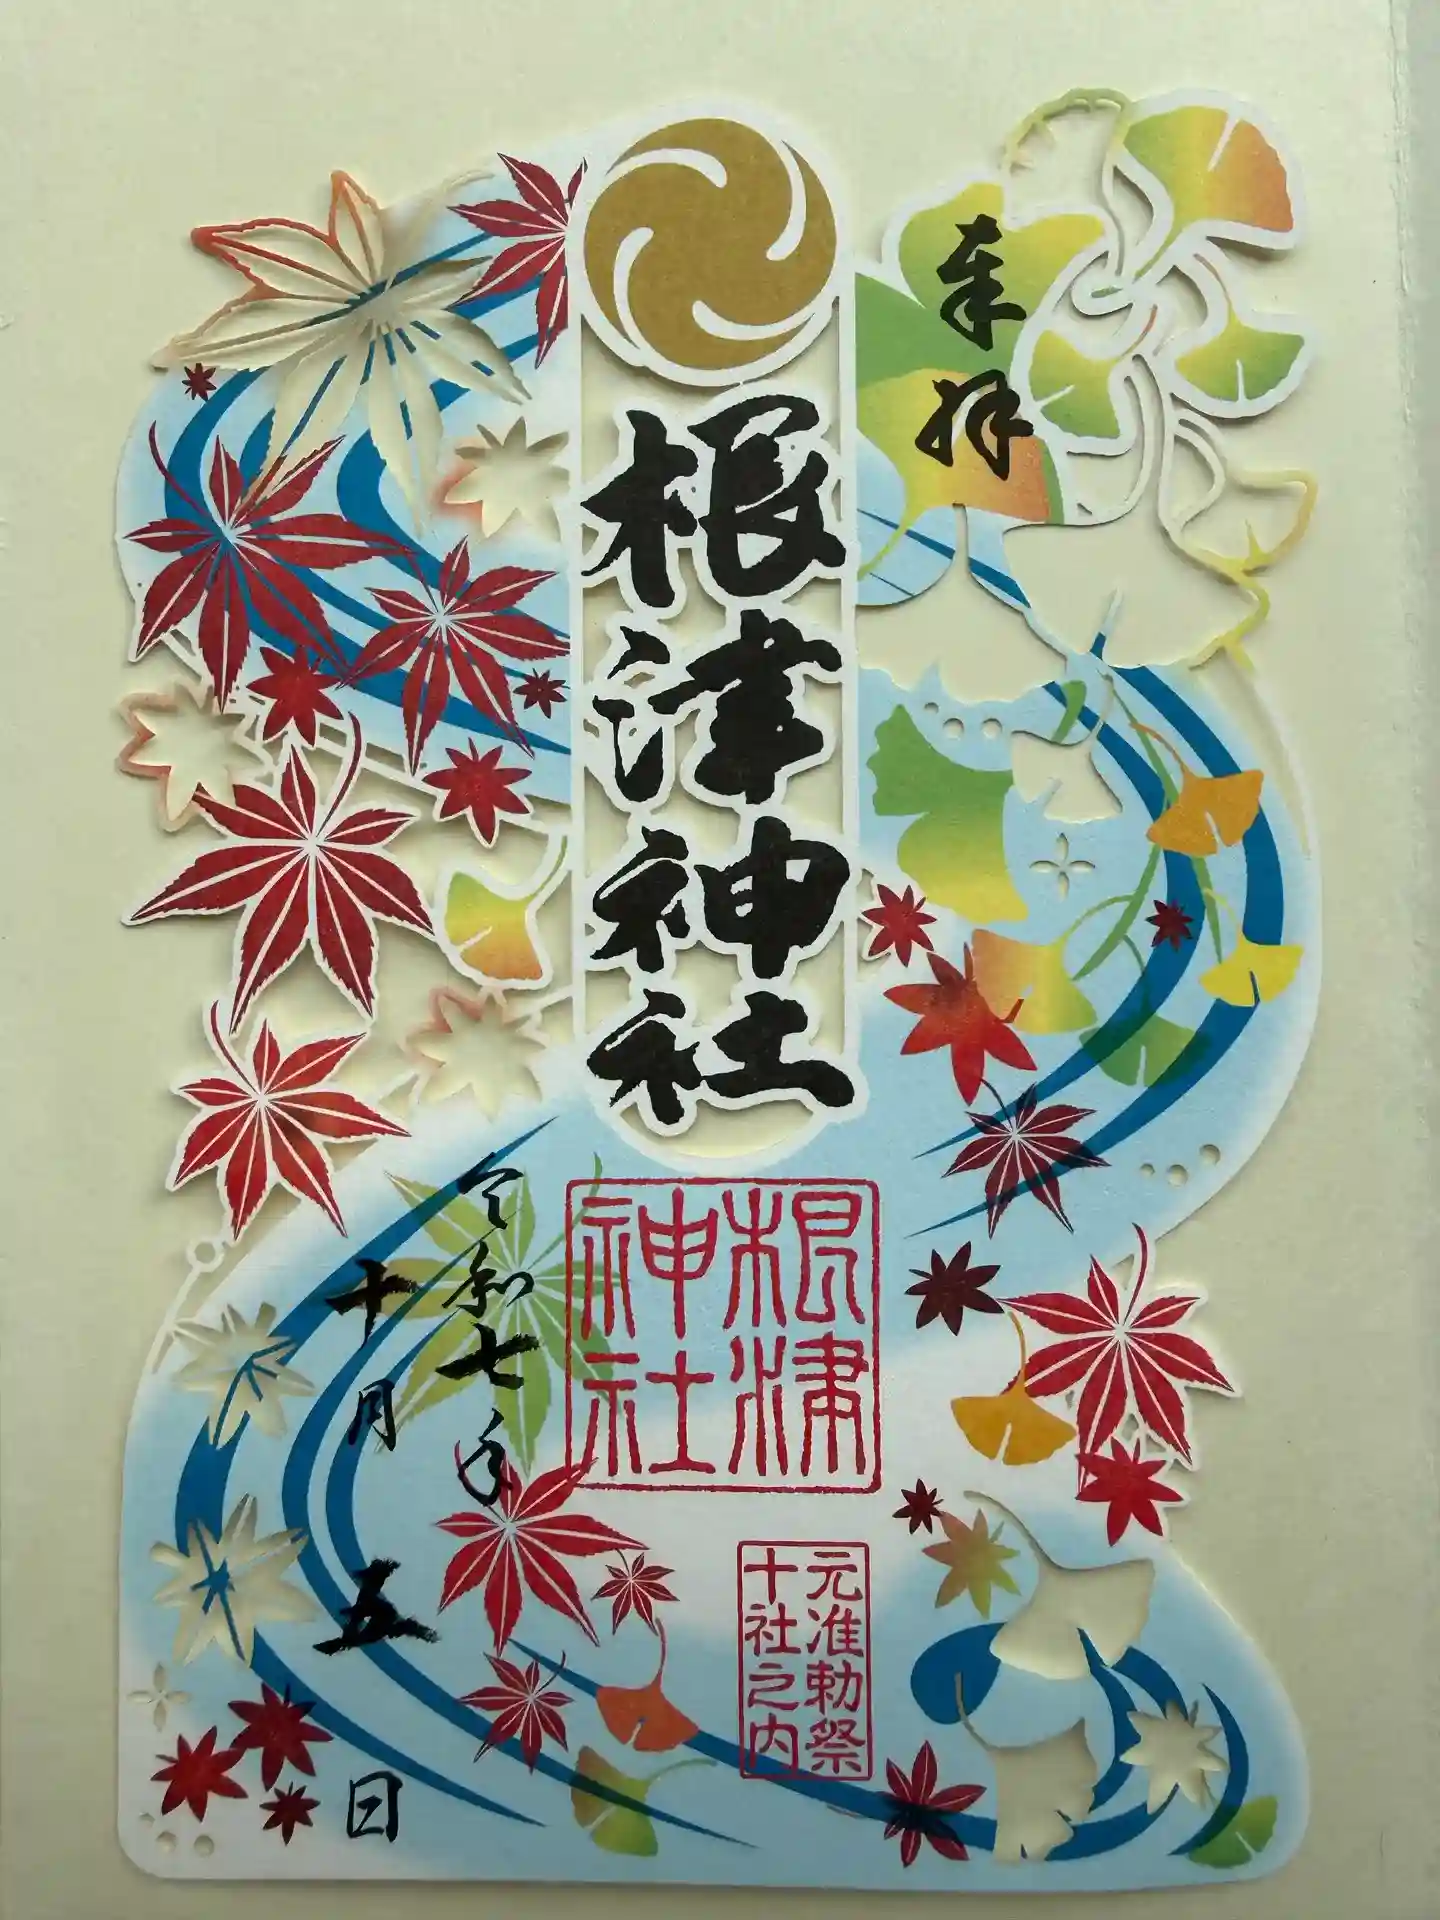 奉拝
根津神社
根津
神社
元准勅祭
十社之内
令和七年
十月五日